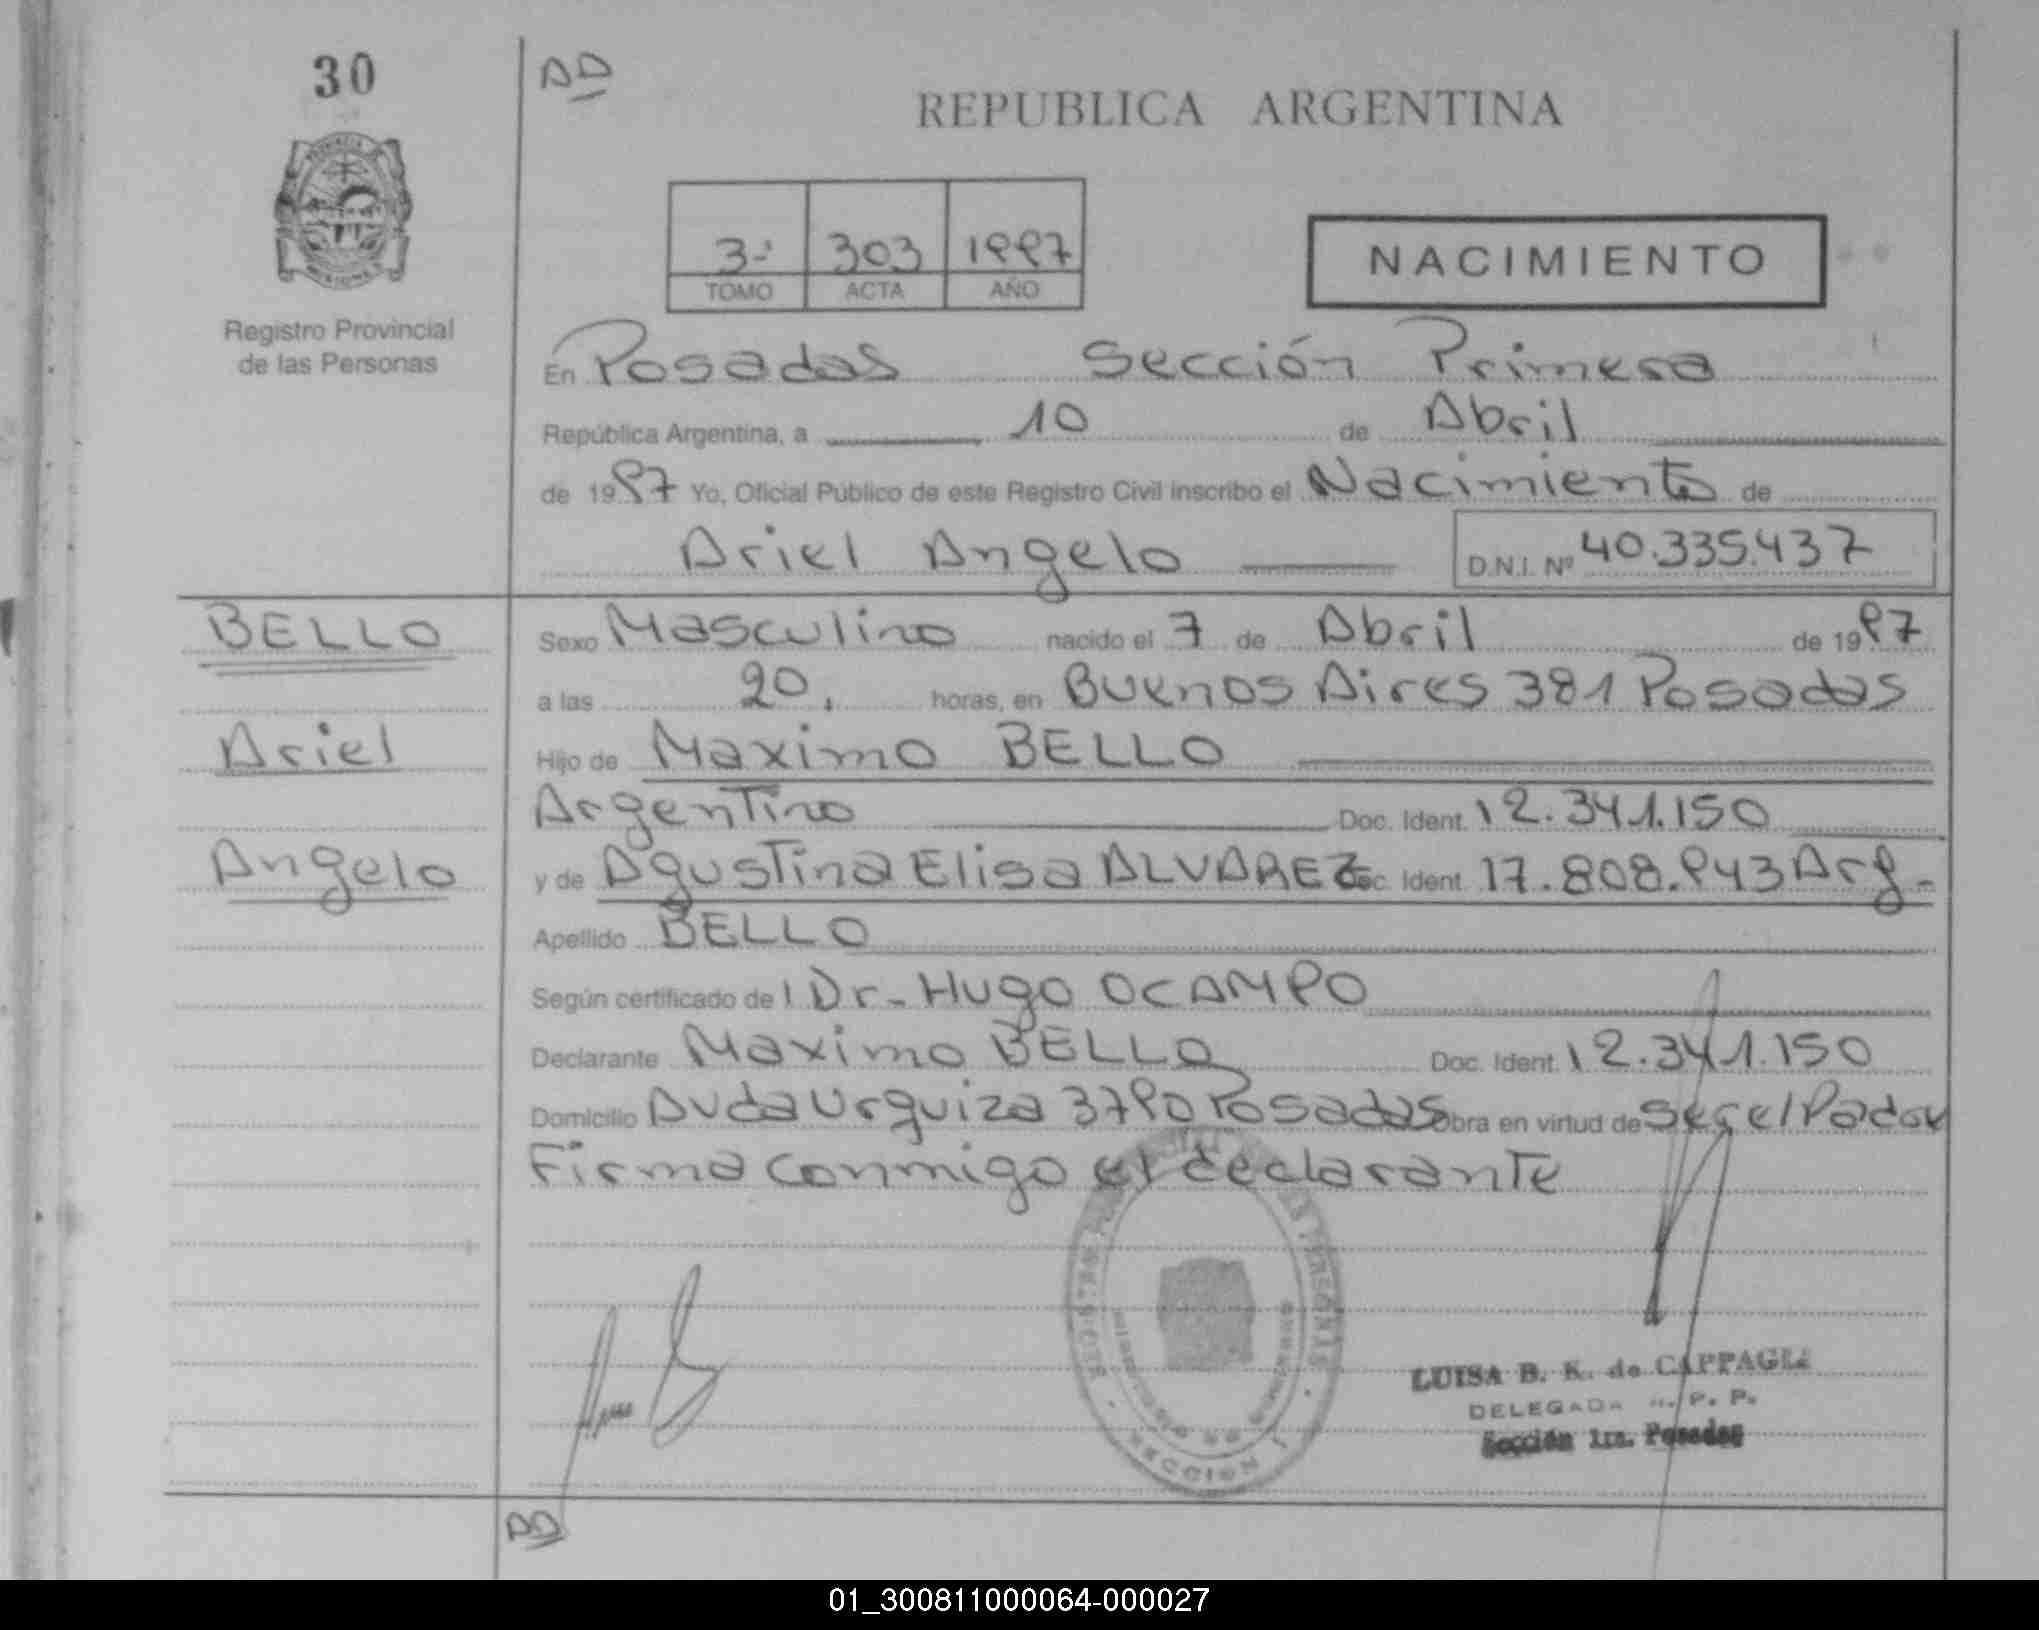 30
DD
REPUBLICA ARGENTINA
3- 303 1997
TOMO ACTA AÑO
NACIMIENTO
Registro Provincial
de las Personas
En Posadas Sección Primera
República Argentina, a 10 de Abril
de 1997 Yo, Oficial Público de este Registro Civil inscribo el Nacimiento de
Ariel Angelo D.N.I. Nº 40.335.437
BELLO
Ariel
Angelo
Sexo Masculino nacido el 7 de Abril de 1997
a las 20. horas, en Buenos Aires 381 Posadas
Hijo de Maximo BELLO
Argentino Doc. Ident. 12.341.150
y de Agustina Elisa ALVAREZ Doc. Ident. 17.808.943 Arg.
Apellido BELLO
Según certificado de Dr. Hugo OCAMPO
Declarante Maximo BELLO Doc. Ident. 12.341.150
Domicilio Avda Urquiza 3790 Posadas Obra en virtud de ser el Padre
Firma conmigo el declarante
SECCION 1
LUISA B. K. de CAPPAGLI
DELEGADA R. P. P.
Sección 1ra. Posadas
DD
01_300811000064-000027